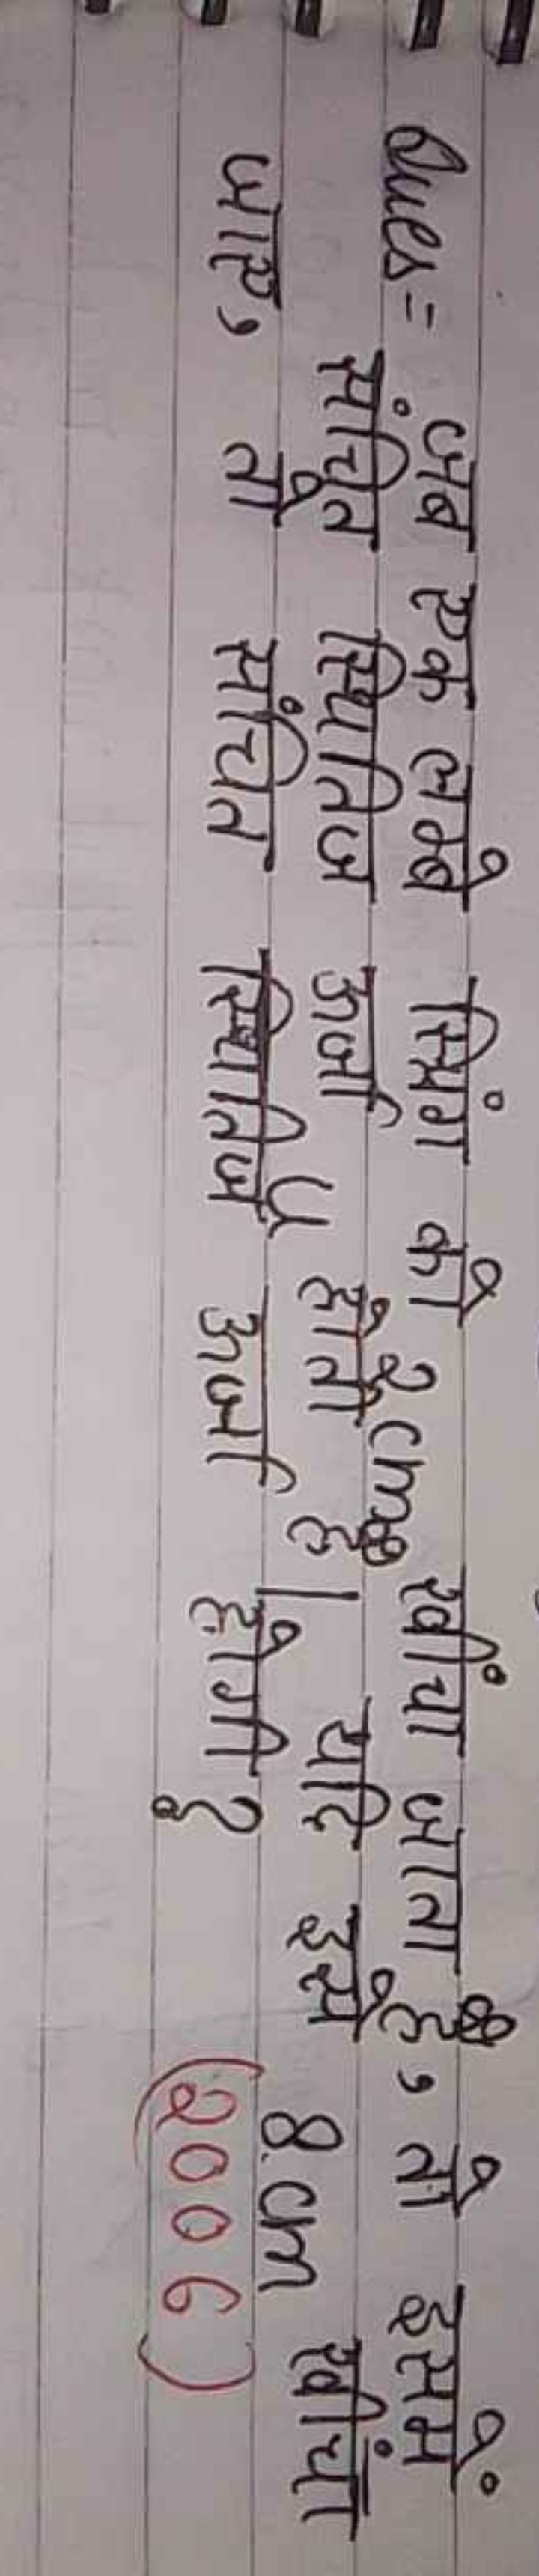 Ques= जब एक लम्बे स्प्रिंग को 2cm खींचा जाता है, तो इसमें
संचित स्थितिज ऊर्जा U होती है। यदि इसे 8 cm खींचा
जाए, तो संचित स्थितिज ऊर्जा होगी?
(2006)